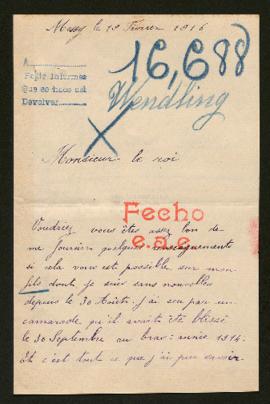 Massy le 18 Février 1916
A
Pedir informes
Que se hace asi
Devolver
16,688
Wendling
Monsieur le roi
Fecho
e.a.e.
Voudriez vous êtes assez bon de
me fournir quelques renseignement
si cela vous est possible sur mon
fils dont je suis sans nouvelles
depuis le 30 Août. J'ai su par un
camarade qu'il avait été blessé
le 30 Septembre au bras: année 1914.
Et c'est tout ce que j'ai pu savoir.